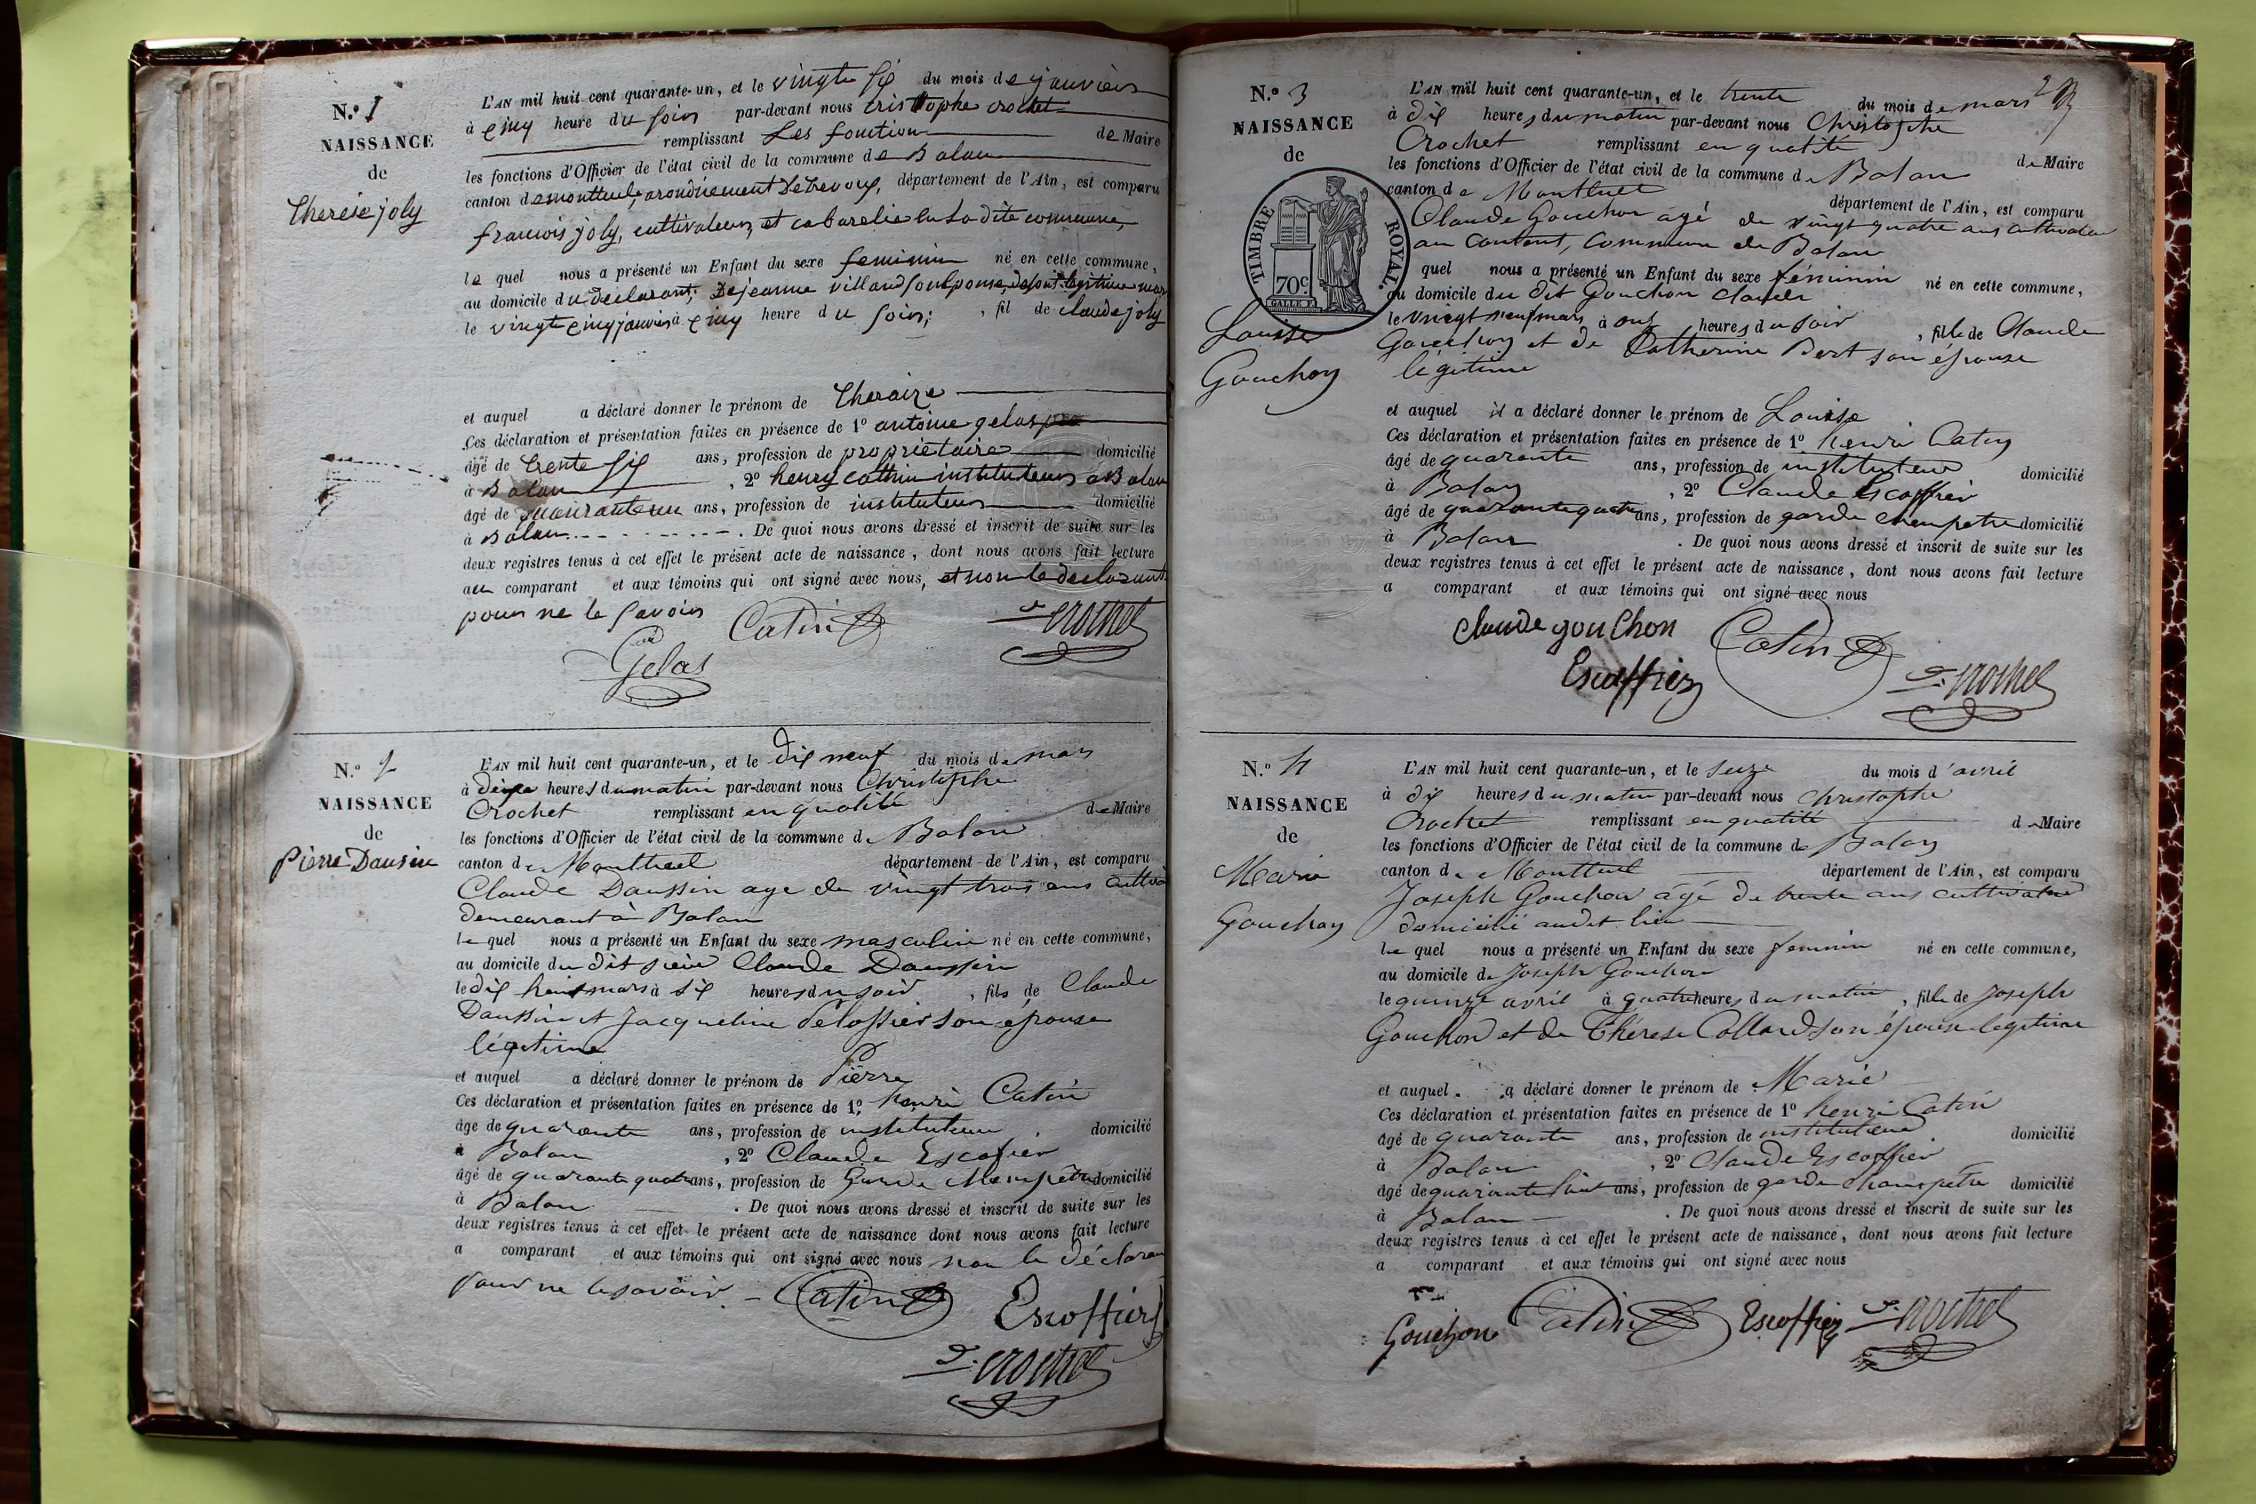 N.º 1
NAISSANCE
de
Therese joly
L'AN mil huit cent quarante-un, et le vingte six du mois de janvier
à cinq heure du soir par-devant nous cristophe crochet
remplissant les fonction de Maire
les fonctions d'Officier de l'état civil de la commune de Balan
canton de montluel, arondicement de trevoux, département de l'Ain, est comparu
francois joly, cultivateur, et cabaretier en la dite commune,
le quel nous a présenté un Enfant du sexe feminin né en cette commune,
au domicile du declarant, de jeanne villand son epouse,
le vingte cinq janvier à cinq heure du soir; , fil de claude joly
et auquel a déclaré donner le prénom de theraize
Ces déclaration et présentation faites en présence de 1º antoine gelas
âgé de trente six ans, profession de proprietaire domicilié
à Balan , 2º henry cathin instituteur a Balan
âgé de quarante un ans, profession de instituteur domicilié
à Balan . De quoi nous avons dressé et inscrit de suite sur les
deux registres tenus à cet effet le présent acte de naissance, dont nous avons fait lecture
au comparant et aux témoins qui ont signé avec nous, et non le declarant
pour ne le savoir
Catin
Crochet
Gelas
N.º 2
NAISSANCE
de
Pierre Daussin
L'AN mil huit cent quarante-un, et le dix neuf du mois de mars
à dix heures du matin par-devant nous Christophe
Crochet remplissant en qualité de Maire
les fonctions d'Officier de l'état civil de la commune de Balan
canton de Montluel département de l'Ain, est comparu
Claude Daussin age de vingt trois ans cultiva
demeurant à Balan
le quel nous a présenté un Enfant du sexe masculin né en cette commune,
au domicile du dit sieur Claude Daussin
le dix huit mars à six heures du soir , fils de Claude
Daussin et Jacqueline Pelossier son épouse
légitime
et auquel a déclaré donner le prénom de Pierre
Ces déclaration et présentation faites en présence de 1º henri Catin
âgé de quarante ans, profession de instituteur domicilié
à Balan , 2º Claude Escofier
âgé de quarante quatre ans, profession de Garde Champêtre domicilié
à Balan . De quoi nous avons dressé et inscrit de suite sur les
deux registres tenus à cet effet le présent acte de naissance dont nous avons fait lecture
a comparant et aux témoins qui ont signé avec nous non le déclaran
pour ne le savoir
Catin
Escoffier
Crochet
2
N.º 3
NAISSANCE
de
TIMBRE ROYAL.
70c.
Louise
Gouchon
L'AN mil huit cent quarante-un, et le trente du mois de mars
à dix heures du matin par-devant nous Christophe
Crochet remplissant en qualité de Maire
les fonctions d'Officier de l'état civil de la commune de Balan
canton de Montluel département de l'Ain, est comparu
Claude Gouchon agé de vingt quatre ans cultivateur
au content, commune de Balan
quel nous a présenté un Enfant du sexe féminin né en cette commune,
au domicile du dit Gouchon claude
le vingt neuf mars à onze heures du soir , fille de Claude
Gouchon et de Catherine Bert son épouse
légitime
et auquel il a déclaré donner le prénom de Louise
Ces déclaration et présentation faites en présence de 1º henri Catin
âgé de quarante ans, profession de instituteur domicilié
à Balan , 2º Claude Escoffier
âgé de quarante quatre ans, profession de garde champetre domicilié
à Balan . De quoi nous avons dressé et inscrit de suite sur les
deux registres tenus à cet effet le présent acte de naissance, dont nous avons fait lecture
a comparant et aux témoins qui ont signé avec nous
claude gouchon
Catin
Escoffier
Crochet
N.º 4
NAISSANCE
de
Marie
Gouchon
L'AN mil huit cent quarante-un, et le seize du mois d'avril
à dix heures du matin par-devant nous Christophe
Crochet remplissant en qualité de Maire
les fonctions d'Officier de l'état civil de la commune de Balan
canton de Montluel département de l'Ain, est comparu
Joseph Gouchon âgé de trente ans cultivateur
domicilié audit lieu
le quel nous a présenté un Enfant du sexe feminin né en cette commune,
au domicile de Joseph Gouchon
le quinze avril à quatre heures du matin , fille de Joseph
Gouchon et de Thérese Collard son épouse legitime
et auquel a déclaré donner le prénom de Marie
Ces déclaration et présentation faites en présence de 1º henri Catin
âgé de quarante ans, profession de instituteur domicilié
à Balan , 2º Claude Escoffier
âgé de quarante huit ans, profession de garde champetre domicilié
à Balan . De quoi nous avons dressé et inscrit de suite sur les
deux registres tenus à cet effet le présent acte de naissance, dont nous avons fait lecture
a comparant et aux témoins qui ont signé avec nous
Gouchon
Catin
Escoffier
Crochet